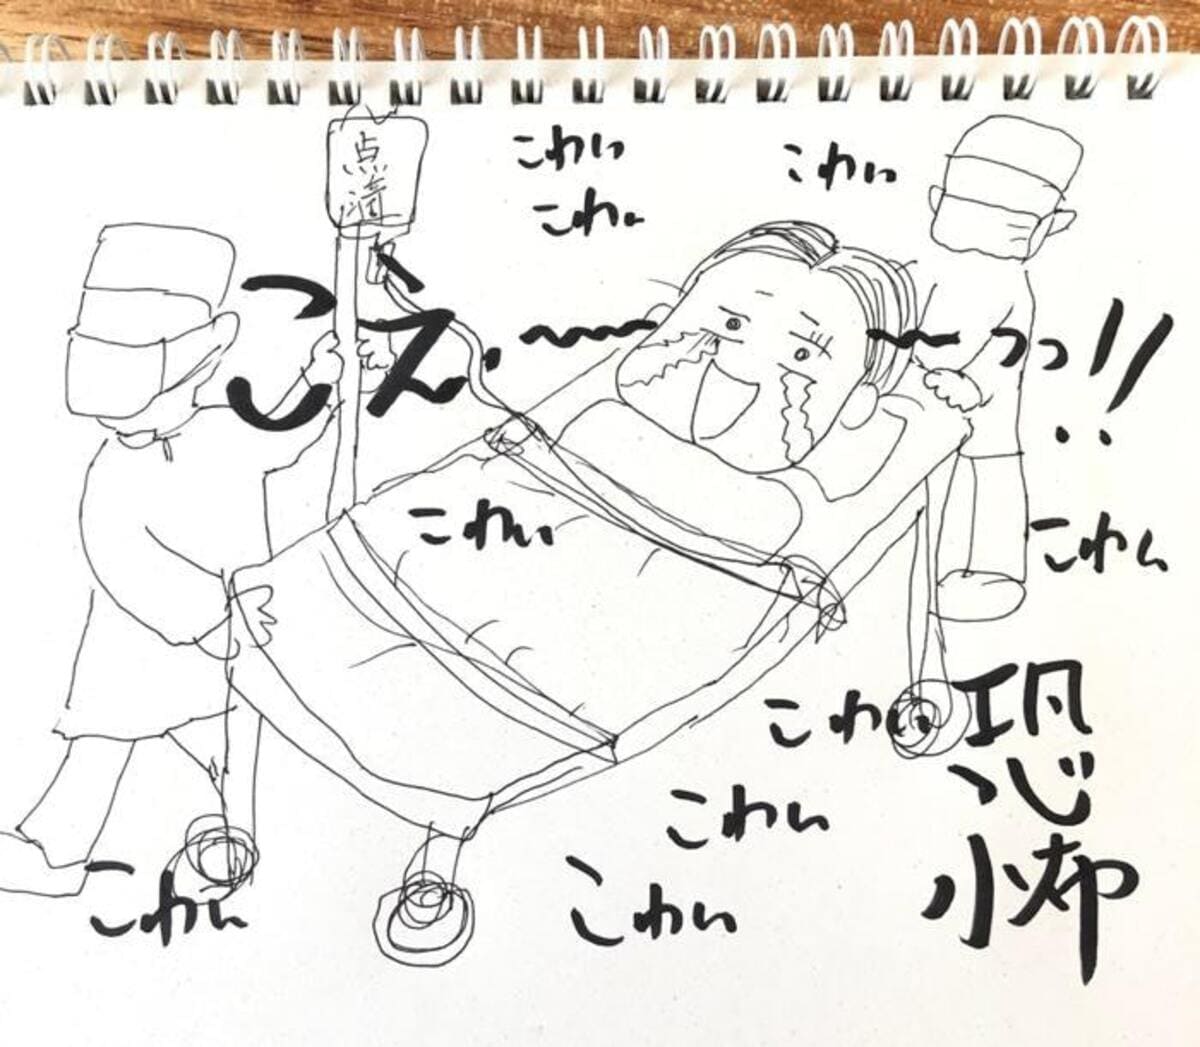 点滴
こわい
こわい
こわい
こえ〜〜っっ!!
こわい
こわい
こわい
恐怖
こわい
こわい
こわい